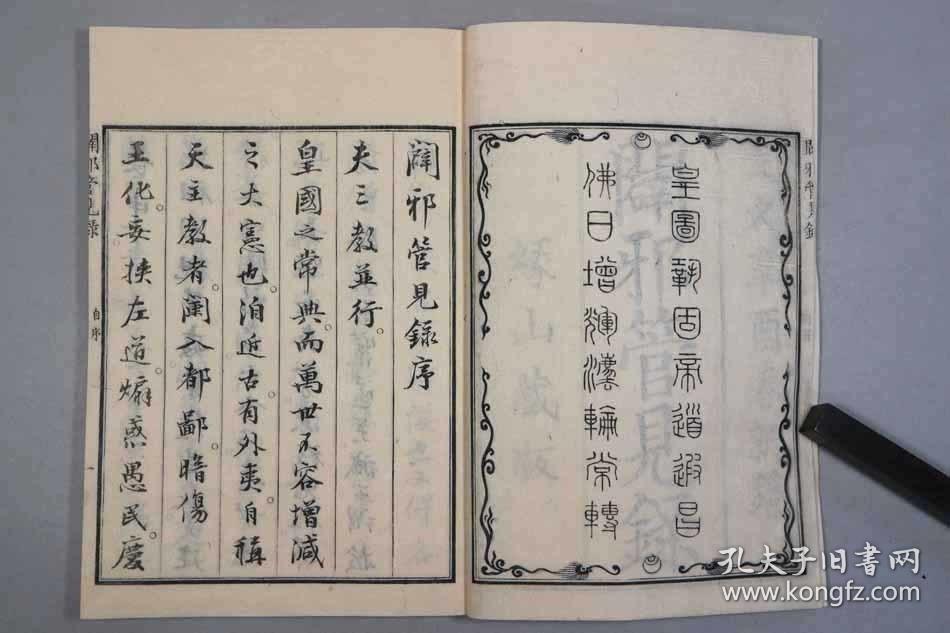 皇圖鞏固帝道遐昌
佛日增輝法輪常轉
闢邪管見錄序
夫三教並行。
皇國之常典。而萬世不容增減
之大憲也。洎近古。有外夷自稱
天主教者。闌入都鄙。暗傷
王化。妄挾左道。煽惑愚民。慶
闢邪管見錄
自序
闢邪管見錄
孔夫子旧书网
www.kongfz.com